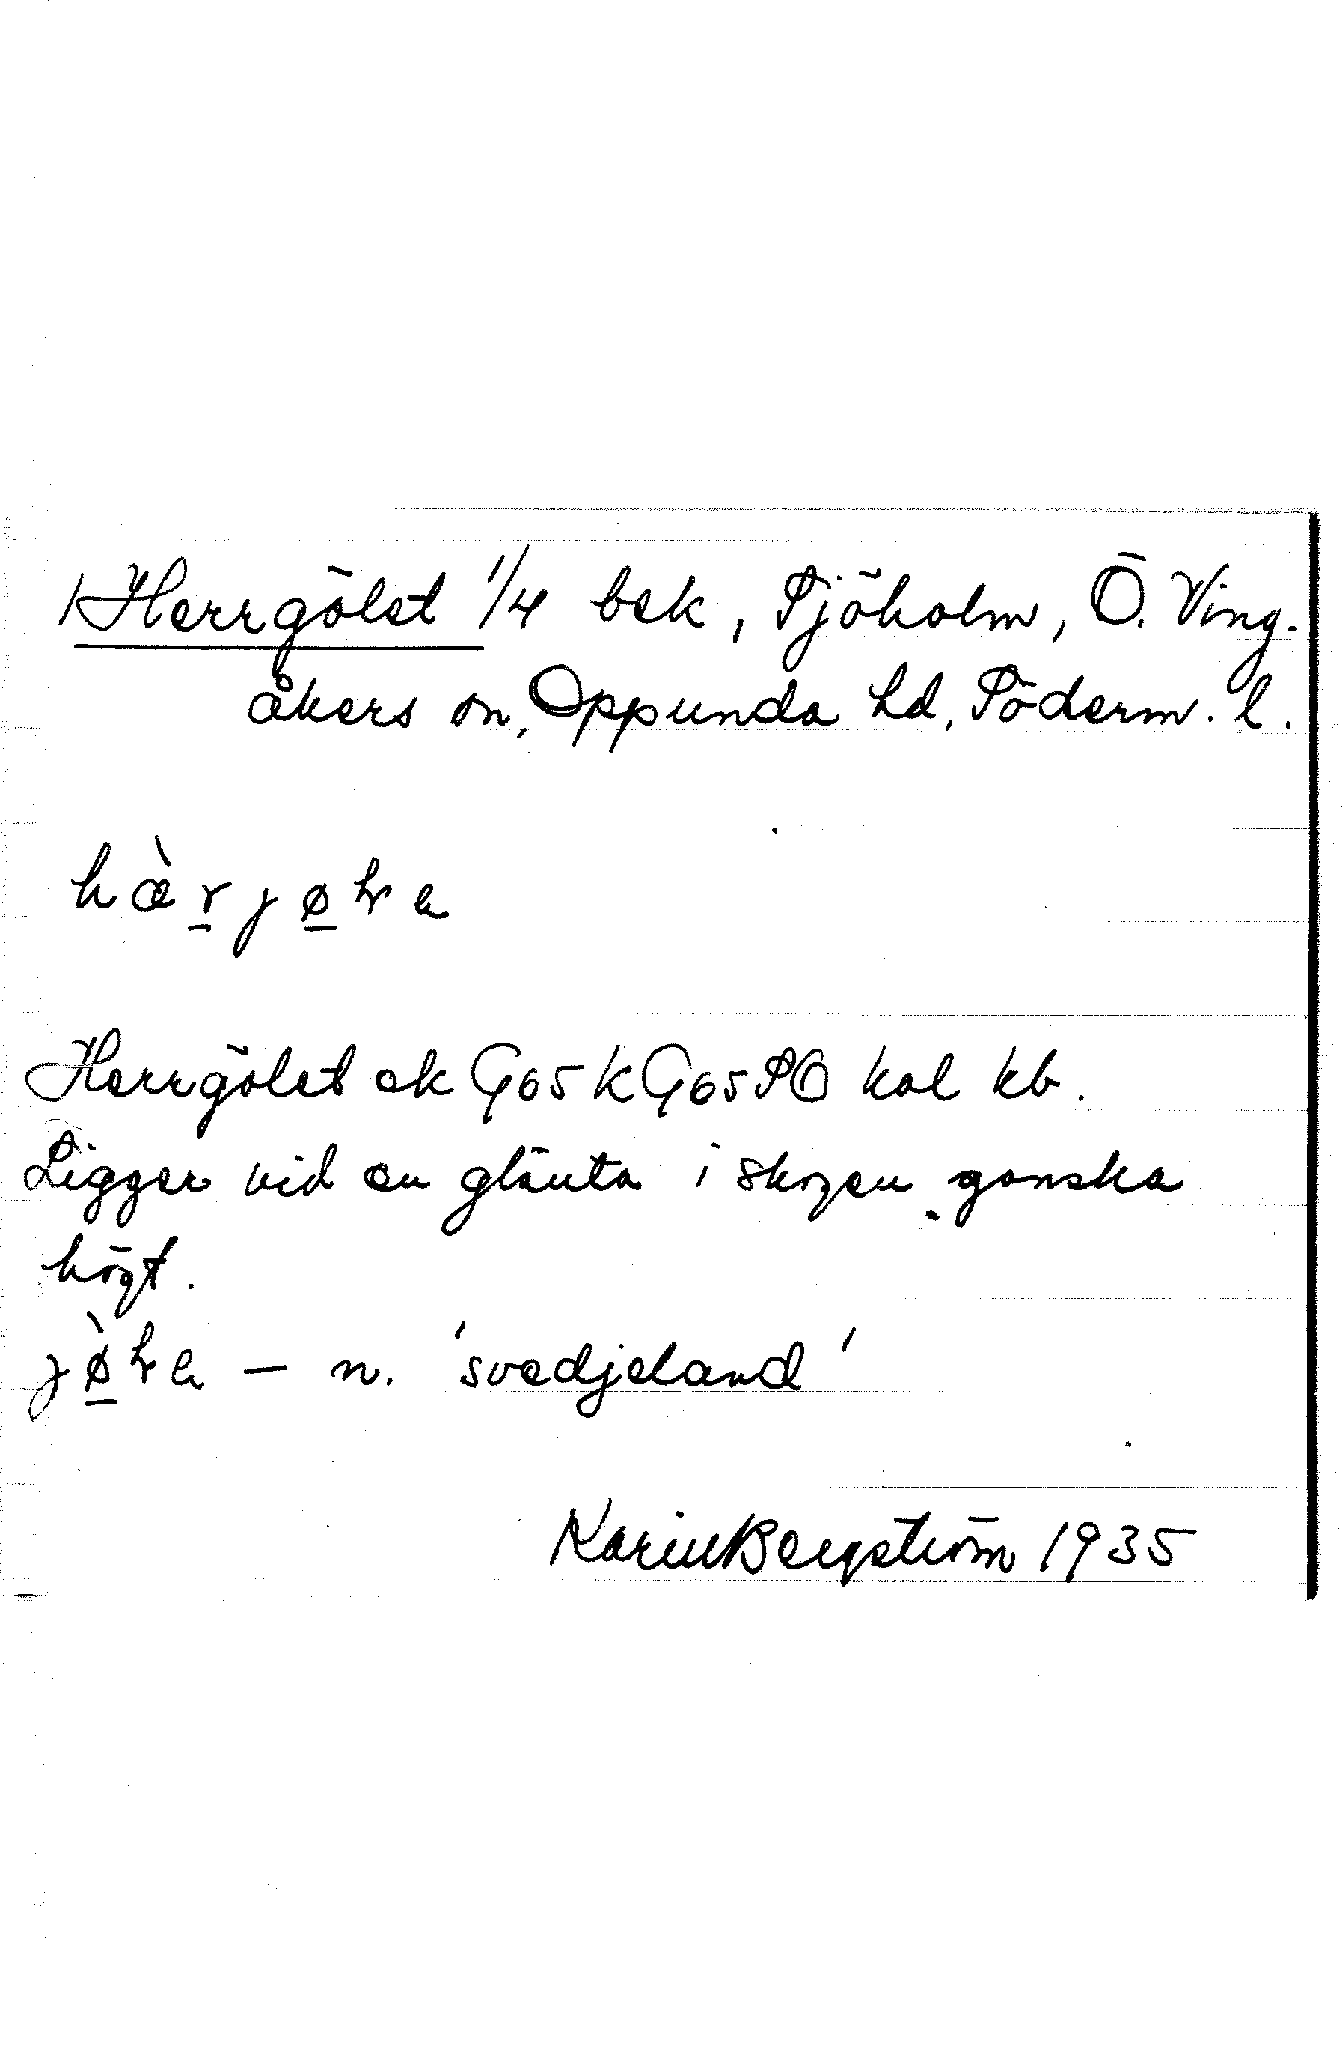 1 Herrgölet 1/4 bsk, Sjöholm, Ö. Ving-
åkers sn, Oppunda hd, Söderm. l.
Herrgölet ek G65 k G65 SO kol kb.
Ligger vid en glänta i skogen ganska
högt.
— n. 'svedjeland'
Karin Bergström 1935